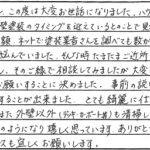 、この度は大変お世話になりました。ハウ
壁塗装のタイミングを迎えているとのことで見
額、ネットで塗装業者さんを調べても数が
悩んでいました。そんな時たまたまご近所
、そのご縁で相談してみましたが大変
お願いすることに決めました。事前の説
することが出来ました。とても綺麗に仕
また外壁以外
も清掃し
のようになり嬉しく思っています。ありがと
スも宜しくお願いします。